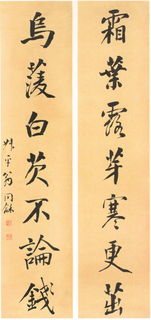 霜葉露芽寒更茁
烏蔆白芡不論錢
叔平翁同龢